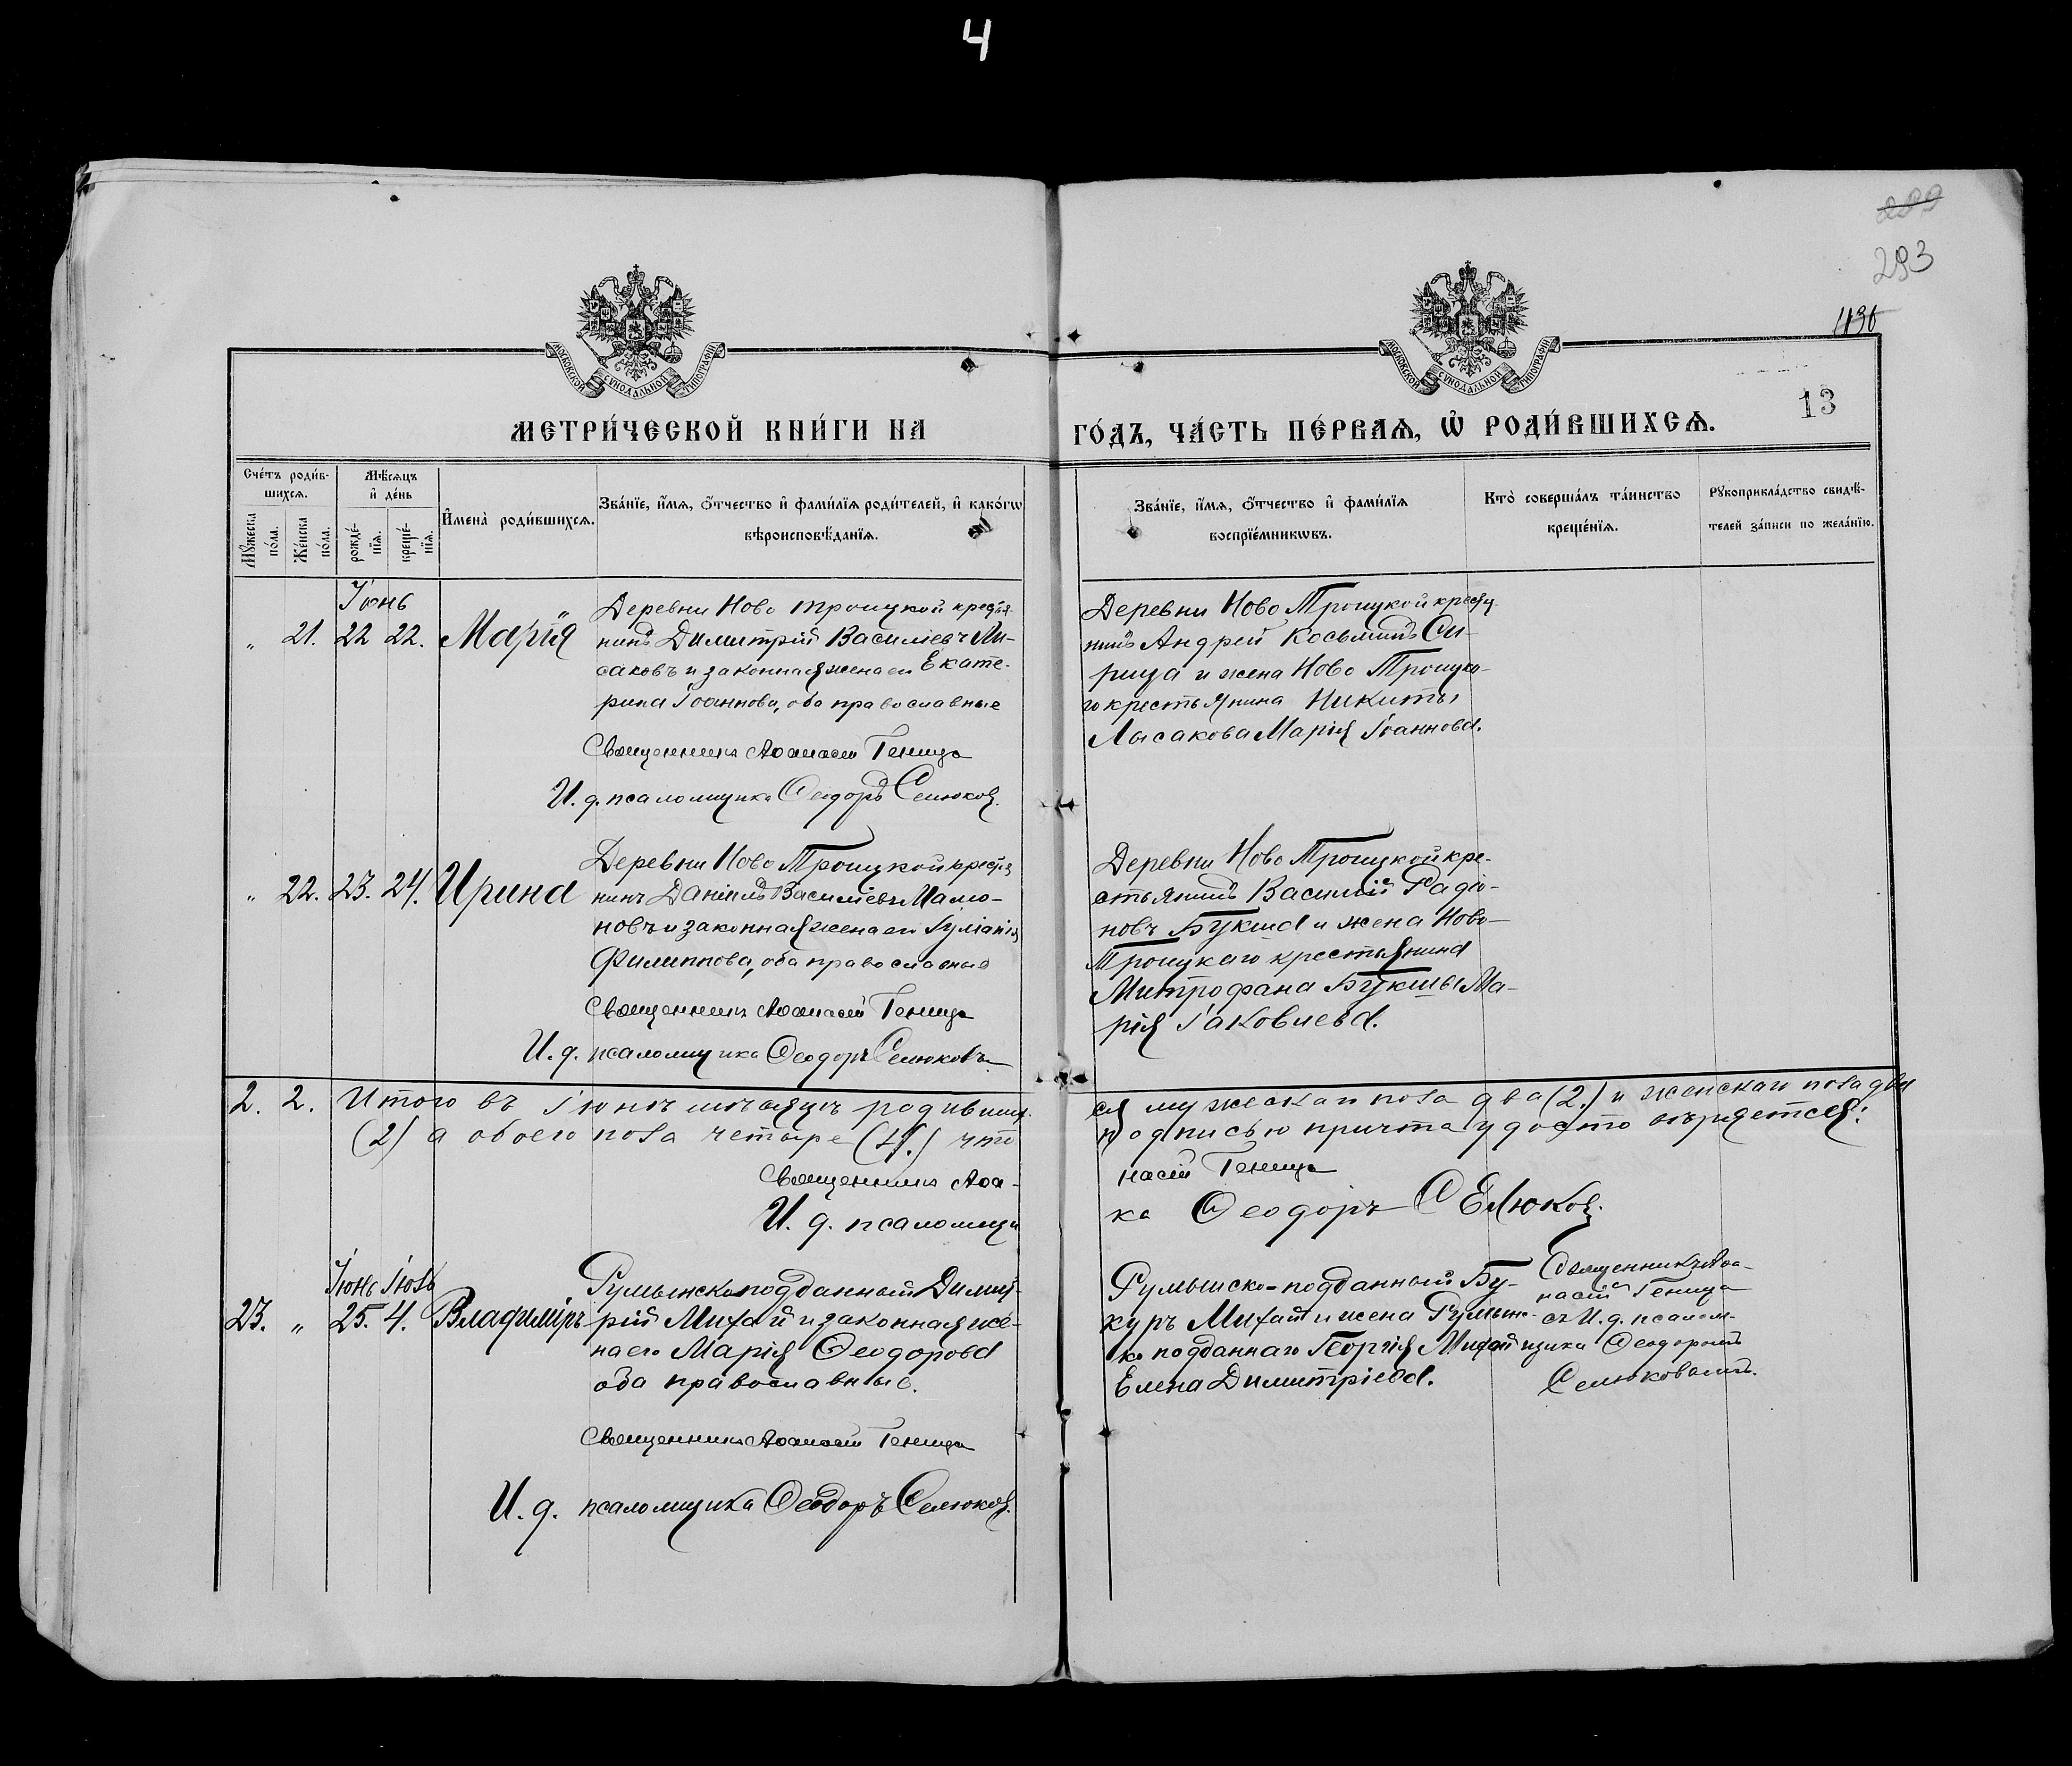 4
293
1136
МОСКОВСКОЙ СѴНОДАЛЬНОЙ ТИПОГРАФІИ
МОСКОВСКОЙ СѴНОДАЛЬНОЙ ТИПОГРАФІИ
13
МЕТРИ́ЧЕСКОЙ КНИ́ГИ НА ГО́ДЪ, ЧА́СТЬ ПЕ́РВАѦ, Ѡ҆ РОДИ́ВШИХСѦ.
Сче́тъ роди́в-
шихсѧ.
Мꙋ́жеска по́ла.
Же́нска по́ла.
Мѣ́сѧцъ и҆ де́нь
рожде́-нїѧ.
креще́-нїѧ.
И҆мена̀ роди́вшихсѧ.
Зва́нїе, и҆́мѧ, ѻ҆́тчество и҆ фами́лїѧ роди́телей, и҆ како́гѡ
вѣроисповѣ́данїѧ.
Зва́нїе, и҆́мѧ, ѻ҆́тчество и҆ фами́лїѧ
воспрїе́мникѡвъ.
Кто̀ соверша́лъ та́инство
креще́нїѧ.
Рꙋкоприкла́дство свидѣ́-
телей за́писи по жела́нїю.
Іюнь
„ 21. 22 22. Марія
Деревни Ново Троицкой крестья-
нинъ Димитрій Василіевъ Лы-
саковъ и законная жена его Екате-
рина Іоаннова, оба православные
Священникъ Аѳанасій Геница
И. д. псаломщика Ѳеодоръ Селюковъ.
Деревни Ново Троицкой крестья-
нинъ Андрей Косьминъ Си-
рица и жена Ново Троицка-
го крестьянина Никиты
Лысакова Марія Іоаннова.
„ 22. 23. 24. Ирина
Деревни Ново Троицкой крестья-
нинъ Даніилъ Василіевъ Мамо-
новъ и законная жена его Іуліанія
Филиппова, оба православные
Священникъ Аѳанасій Геница
И. д. псаломщика Ѳеодоръ Селюковъ.
Деревни Ново Троицкой кре-
стьянинъ Василій Радіо-
новъ Букша и жена Ново-
Троицкаго крестьянина
Митрофана Букшы Ма-
рія Іаковлева.
2. 2. Итого въ Іюнѣ мѣсяцѣ родивших-
ся мужескаго пола два (2.) и женскаго пола два
(2) а обоего пола четыре (4.) что
подписью причта удостовѣряется:
Священникъ Аѳа-
насій Геница
И. д. псаломщи
ка Ѳеодоръ Селюковъ.
Іюнь Іюль
23. „ 25. 4. Владиміръ
Румынскоподданный Димит-
рій Михай и законная же-
на его Марія Ѳеодорова
оба православные.
Священникъ Аѳанасій Геница
И. д. псаломщика Ѳеодоръ Селюковъ.
Румынско-подданный Бу-
куръ Михай и жена Румынс-
ко подданнаго Георгія Михай
Елена Димитріева.
Священникъ Аѳа-
насій Геница
съ И. д. псалом-
щика Ѳеодоромъ
Селюковымъ.